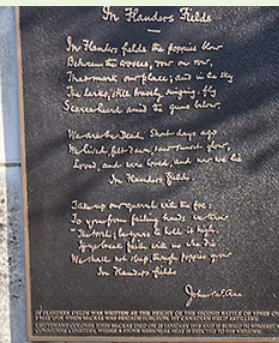 In Flanders Fields
In Flanders fields the poppies blow
Between the crosses, row on row,
That mark our place; and in the sky
The larks, still bravely singing, fly
Scarce heard amid the guns below.
We are the Dead. Short days ago
We lived, felt dawn, saw sunset glow,
Loved, and were loved, and now we lie
In Flanders fields.
Take up our quarrel with the foe:
To you from failing hands we throw
The torch; be yours to hold it high.
If ye break faith with us who die
We shall not sleep, though poppies grow
In Flanders fields
John McCrae
IN FLANDERS FIELDS WAS WRITTEN AT THE HEIGHT OF THE SECOND BATTLE OF YPRES ON
3 MAY 1915 WHEN MCCRAE WAS BRIGADE-SURGEON, 1ST CANADIAN FIELD ARTILLERY.
LIEUTENANT COLONEL JOHN MCCRAE DIED ON 28 JANUARY 1918 AND IS BURIED IN WIMEREUX
COMMUNAL CEMETERY, WHERE A STONE MEMORIAL SEAT IS ERECTED TO HIS MEMORY.